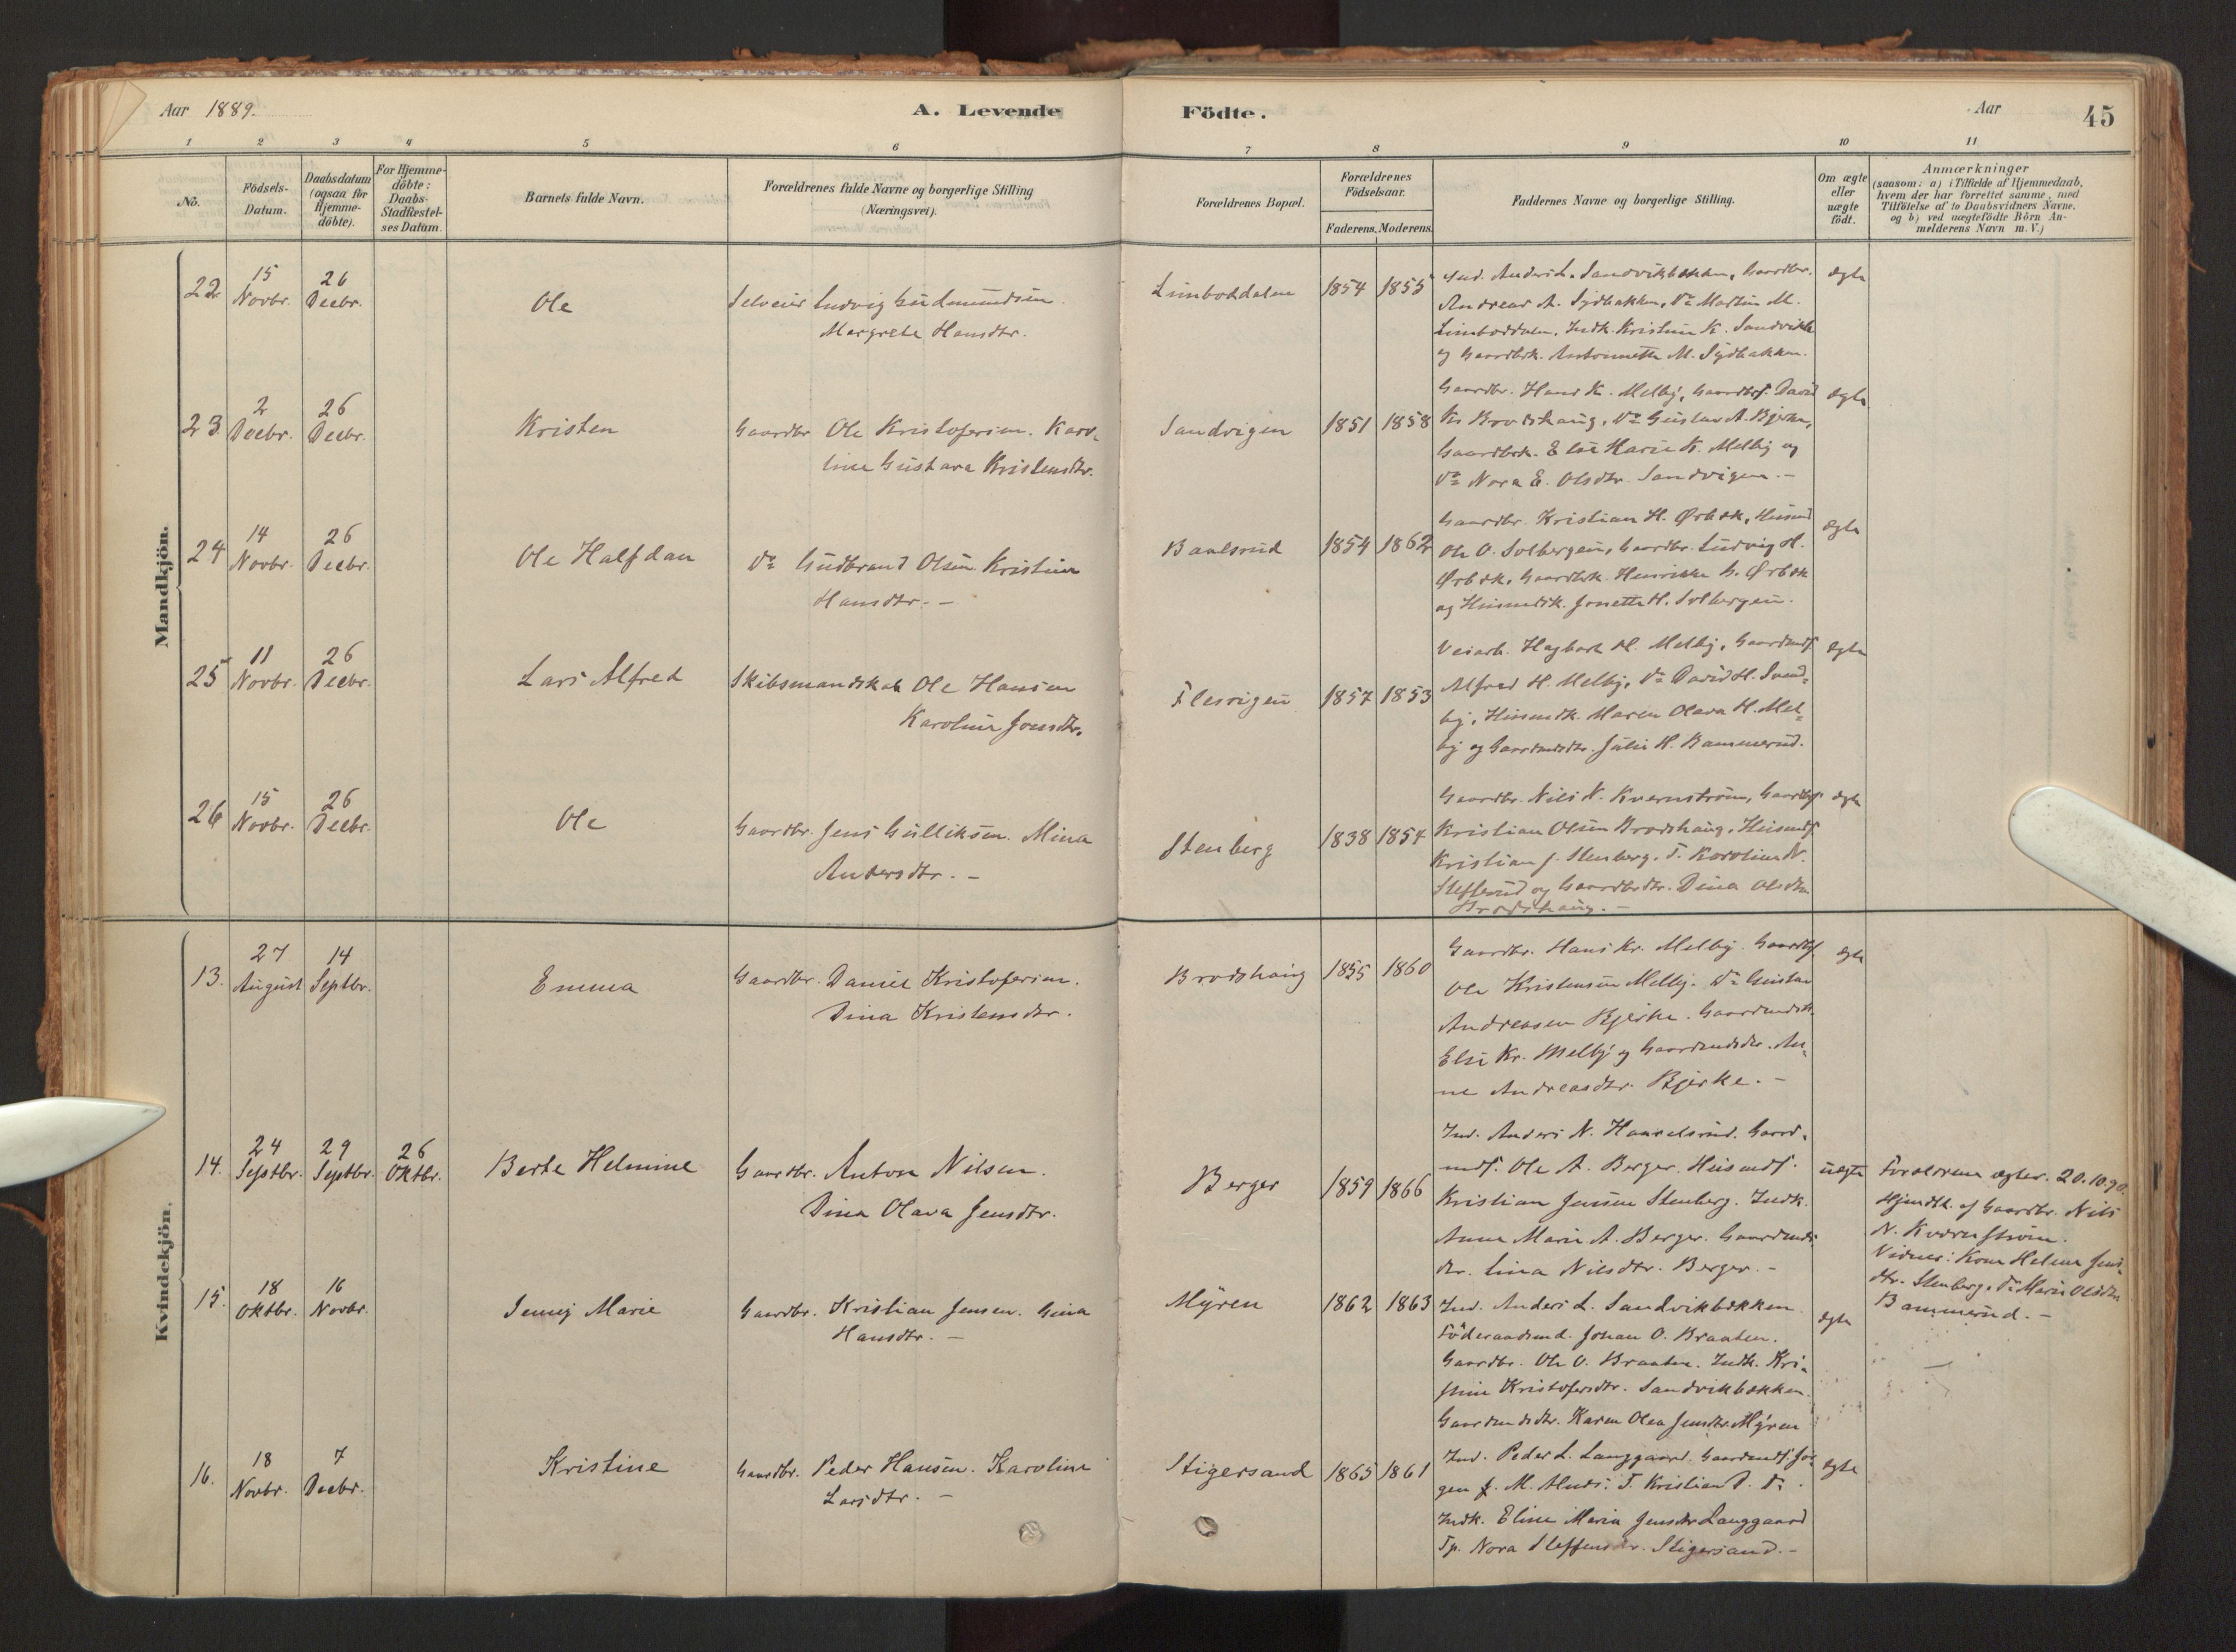 Aar 1889.
A. Levende Födte.
Aar
45
1 2 3 4 5 6 7 8 9 10 11
No.
Födsels-
Datum.
Daabsdatum
(ogsaa for
Hjemme-
döbte).
For Hjemme-
döbte:
Daabs-
Stadfæstel-
ses Datum.
Barnets fulde Navn.
Forældrenes fulde Navne og borgerlige Stilling
(Næringsvei).
Forældrenes Bopæl.
Forældrenes
Födselsaar.
Faderens. Moderens.
Faddernes Navne og borgerlige Stilling.
Om ægte
eller
uægte
födt.
Anmærkninger
(saasom: a) i Tilfælde af Hjemmedaab,
hvem der har forrettet samme, med
Tilföielse af to Daabsvidners Navne,
og b) ved uægtefödte Börn An-
melderens Navn m. V.)
Mandkjön.
22
15
Novbr.
26
Decbr.
Ole
Selveier Ludvig Gudmundsen
Margrete Hansdtr.
Limboddalen
1854 1855
Ind. Anders L. Sandvikbakken, Gaardbr.
Andreas A. Sydbakken, Do Martin M.
Limboddalen, Indk. Kristine K. Sandvikb
og Gaardbrk. Antonette M. Sydbakken.
ægte
23
2
Decbr.
26
Decbr.
Kristen
Gaardbr Ole Kristofersen. Karo-
line Gustava Kristensdtr.
Sandvigen
1851 1858
Gaardbr. Hans K. Melby, Gaardbrs. David
Kr Brodshaug, Do Gustav A. Bjerke,
Gaardbrk. Else Marie K. Melby og
Do Nora E. Olsdtr. Sandvigen. -
ægte
24
14
Novbr.
26
Decbr.
Ole Halfdan
Do Gudbrand Olsen. Kristine
Hansdtr. -
Baalsrud
1854 1862
Gaardbr. Kristian H. Ørbæk, Husmd
Ole O. Solbergeie, Gaardbr. Ludvig H.
Ørbæk, Gaardbrk. Henrikke G. Ørbæk
og Husmdk. Jonette H. Solbergeie.
ægte
25
11
Novbr.
26
Decbr.
Lars Alfred
Skibsmandskab Ole Hansen
Karoline Jonsdtr.
Flesvigen
1857 1853
Veiarb. Hagbart H. Melby, Gaardmds.
Alfred H. Melby, Do David H. Svend-
by, Husmdk. Maren Olava H. Mel-
by og Gaardmdsdtr. Julie H. Bammerud.
ægte
26
15
Novbr.
26
Decbr.
Ole
Gaardbr. Jens Gulliksen. Mina
Andersdtr. -
Stenberg
1838 1854
Gaardbr. Nils N. Kvernstrøm, Gaardbrs.
Kristian Olsen Brodshaug, Husmds.
Kristian J. Stenberg. T. Karoline N.
og Gaardbrdtr. Dina Olsdtr
Brodshaug. -
ægte
Kvindekjön.
13.
27
August
14
Septbr.
Emma
Gaardbr. Daniel Kristofersen.
Dina Kristensdtr.
Brodshaug
1855 1860
Gaardbr. Hans Kr. Melby. Gaardbs.
Ole Kristensen Melby. Do Gustav
Andreasen Bjerke. Gaardmdsk.
Else Kr. Melby og Gaardmdsdtr. An-
ne Andreasdtr. Bjerke. -
ægte
14.
24
Septbr.
29
Septbr.
26
Oktbr.
Berte Helmine
Gaardbr. Anton Nilsen.
Dina Olava Jensdtr.
Berger
1859 1866
Ind. Anders N. Haavelsrud. Gaard-
mds. Ole A. Berger. Husmds.
Kristian Jensen Stenberg. Indk.
Anne Marie A. Berger. Gaardmds
dtr. Lina Nilsdtr. Berger. -
uægte
Forældrene ægtev. 20.10.90.
Hjemdbt. af Gaardbr. Nils
N. Kværnstrøm.
Vidner: Kone Helene Jens-
dtr. Stenberg, Do Marie Olsdtr
Bammerud. -
15.
18
Oktbr.
16
Novbr.
Jenny Marie
Gaardbr. Kristian Jensen. Gina
Hansdtr. -
Myren
1862 1863
Ind. Anders L. Sandvikbakken.
Föderaadsmd. Johan O. Braaten.
Gaardbr. Ole O. Braaten. Indk. Kri-
stine Kristofersdtr. Sandvikbakken.
Gaardmdsdtr. Karen Olea Jensdtr. Myren
ægte
16.
18
Novbr.
7
Decbr.
Kristine
Gaardbr. Peder Hansen. Karoline
Larsdtr. -
Stigersand
1865 1861
Ind. Peder L. Langgaard. Gaardmds. Jør-
gen J. M. T. Kristian P. Do.
Indk. Eline Marie Jensdtr Langgaard
Tp. Nora Steffensdtr. Stigersand. -
ægte